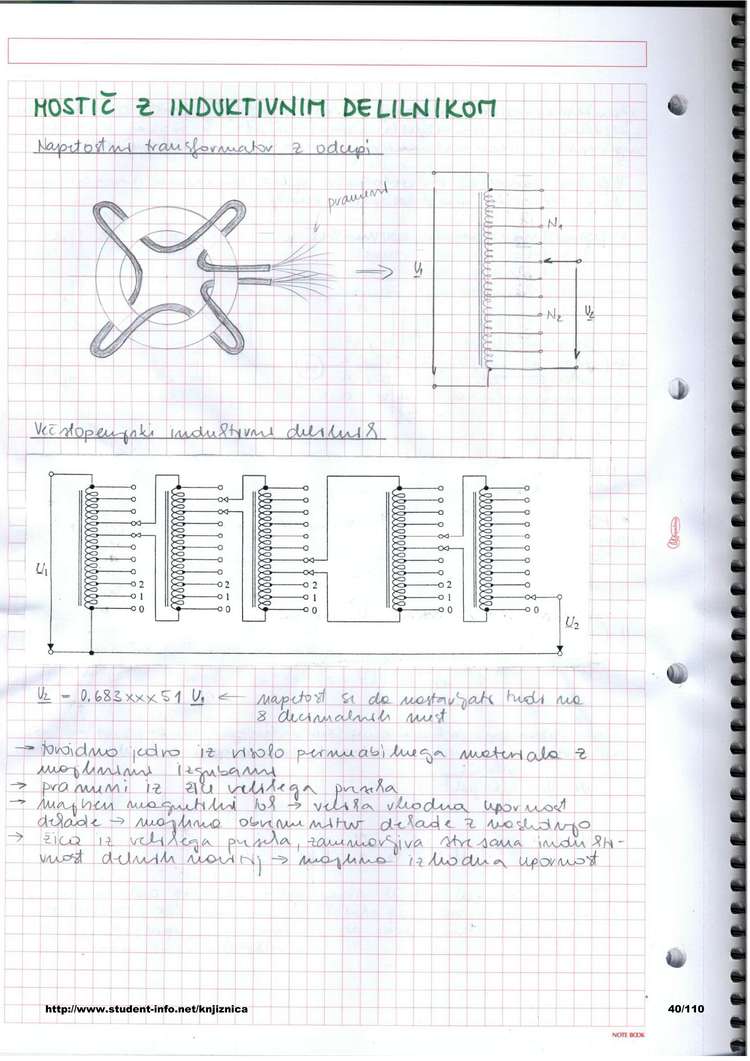 MOSTIČ Z INDUKTIVNIM DELILNIKOM
Napetostni transformator z odcepi
pramensi
N₁
U₁
N₂
U₂
Večstopenjski induktivni delilnik
U₁
2 2 2 2
1 1 1 1
0 0 0 0 0
U₂
U₂ = 0.683xxx51 U₁ ← napetost se da nastavljati tudi na
8 decimalnih mest
→ toroidno jedro iz visoko permeabilnega materiala z
majhnimi izgubami
→ prameni iz žice velikega preseka
→ majhen magnetilni tok → velika vhodna upornost
dekade → majhna obremenitev dekade z naslednjo
→ žica iz velikega preseka, zanemarljiva stresana indukti-
vnost delnih navitij → majhna izhodna upornost
http://www.student-info.net/knjiznica
40/110
NOTE BOOK